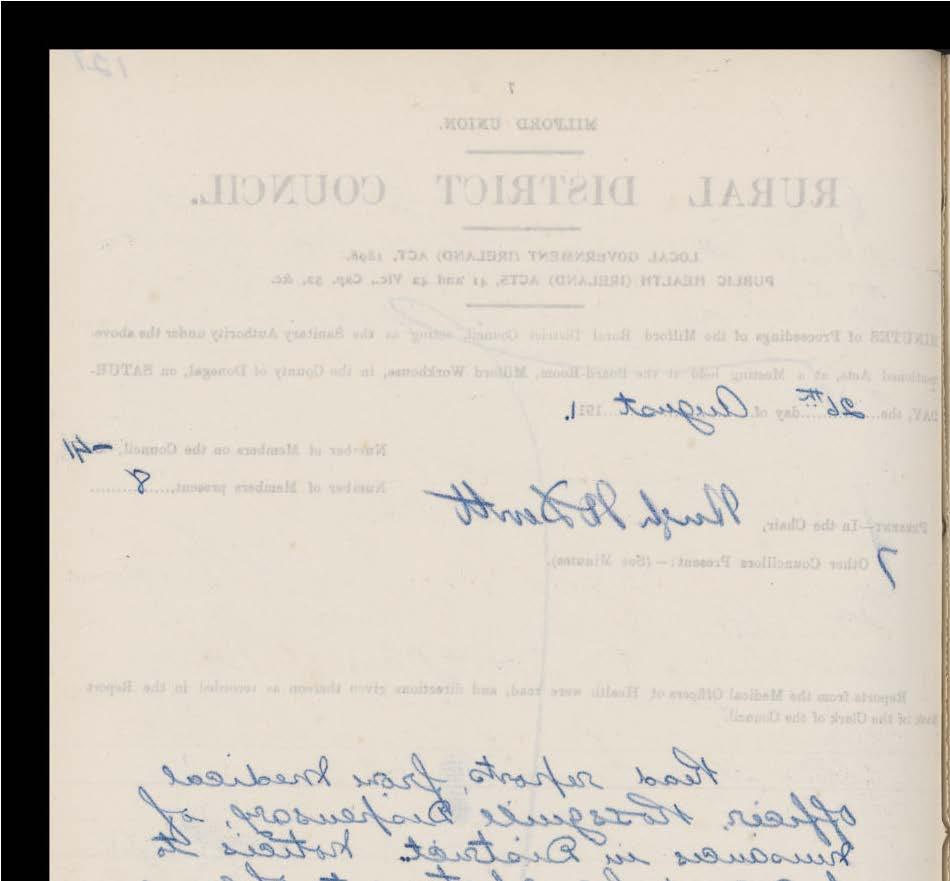 121
7
MILFORD UNION.
RURAL DISTRICT COUNCIL.
LOCAL GOVERNMENT (IRELAND) ACT, 1898.
PUBLIC HEALTH (IRELAND) ACTS, 41 and 42 Vic., Cap. 52, &c.
MINUTES of Proceedings of the Milford Rural District Council, acting as the Sanitary Authority under the above-
mentioned Acts, at a Meeting held at the Board-Room, Milford Workhouse, in the County of Donegal, on SATUR-
DAY, the 26th day of August 1911.
Number of Members on the Council, -41
Number of Members present, 8
PRESENT—In the Chair, Hugh McDevitt
7 Other Councillors Present:—(See Minutes).
Reports from the Medical Officers of Health were read, and directions given thereon as recorded in the Report
Book of the Clerk of the Council.
Read reports from Medical
Officer, Rosguile Dispensary, of
nuisances in District. Notices to